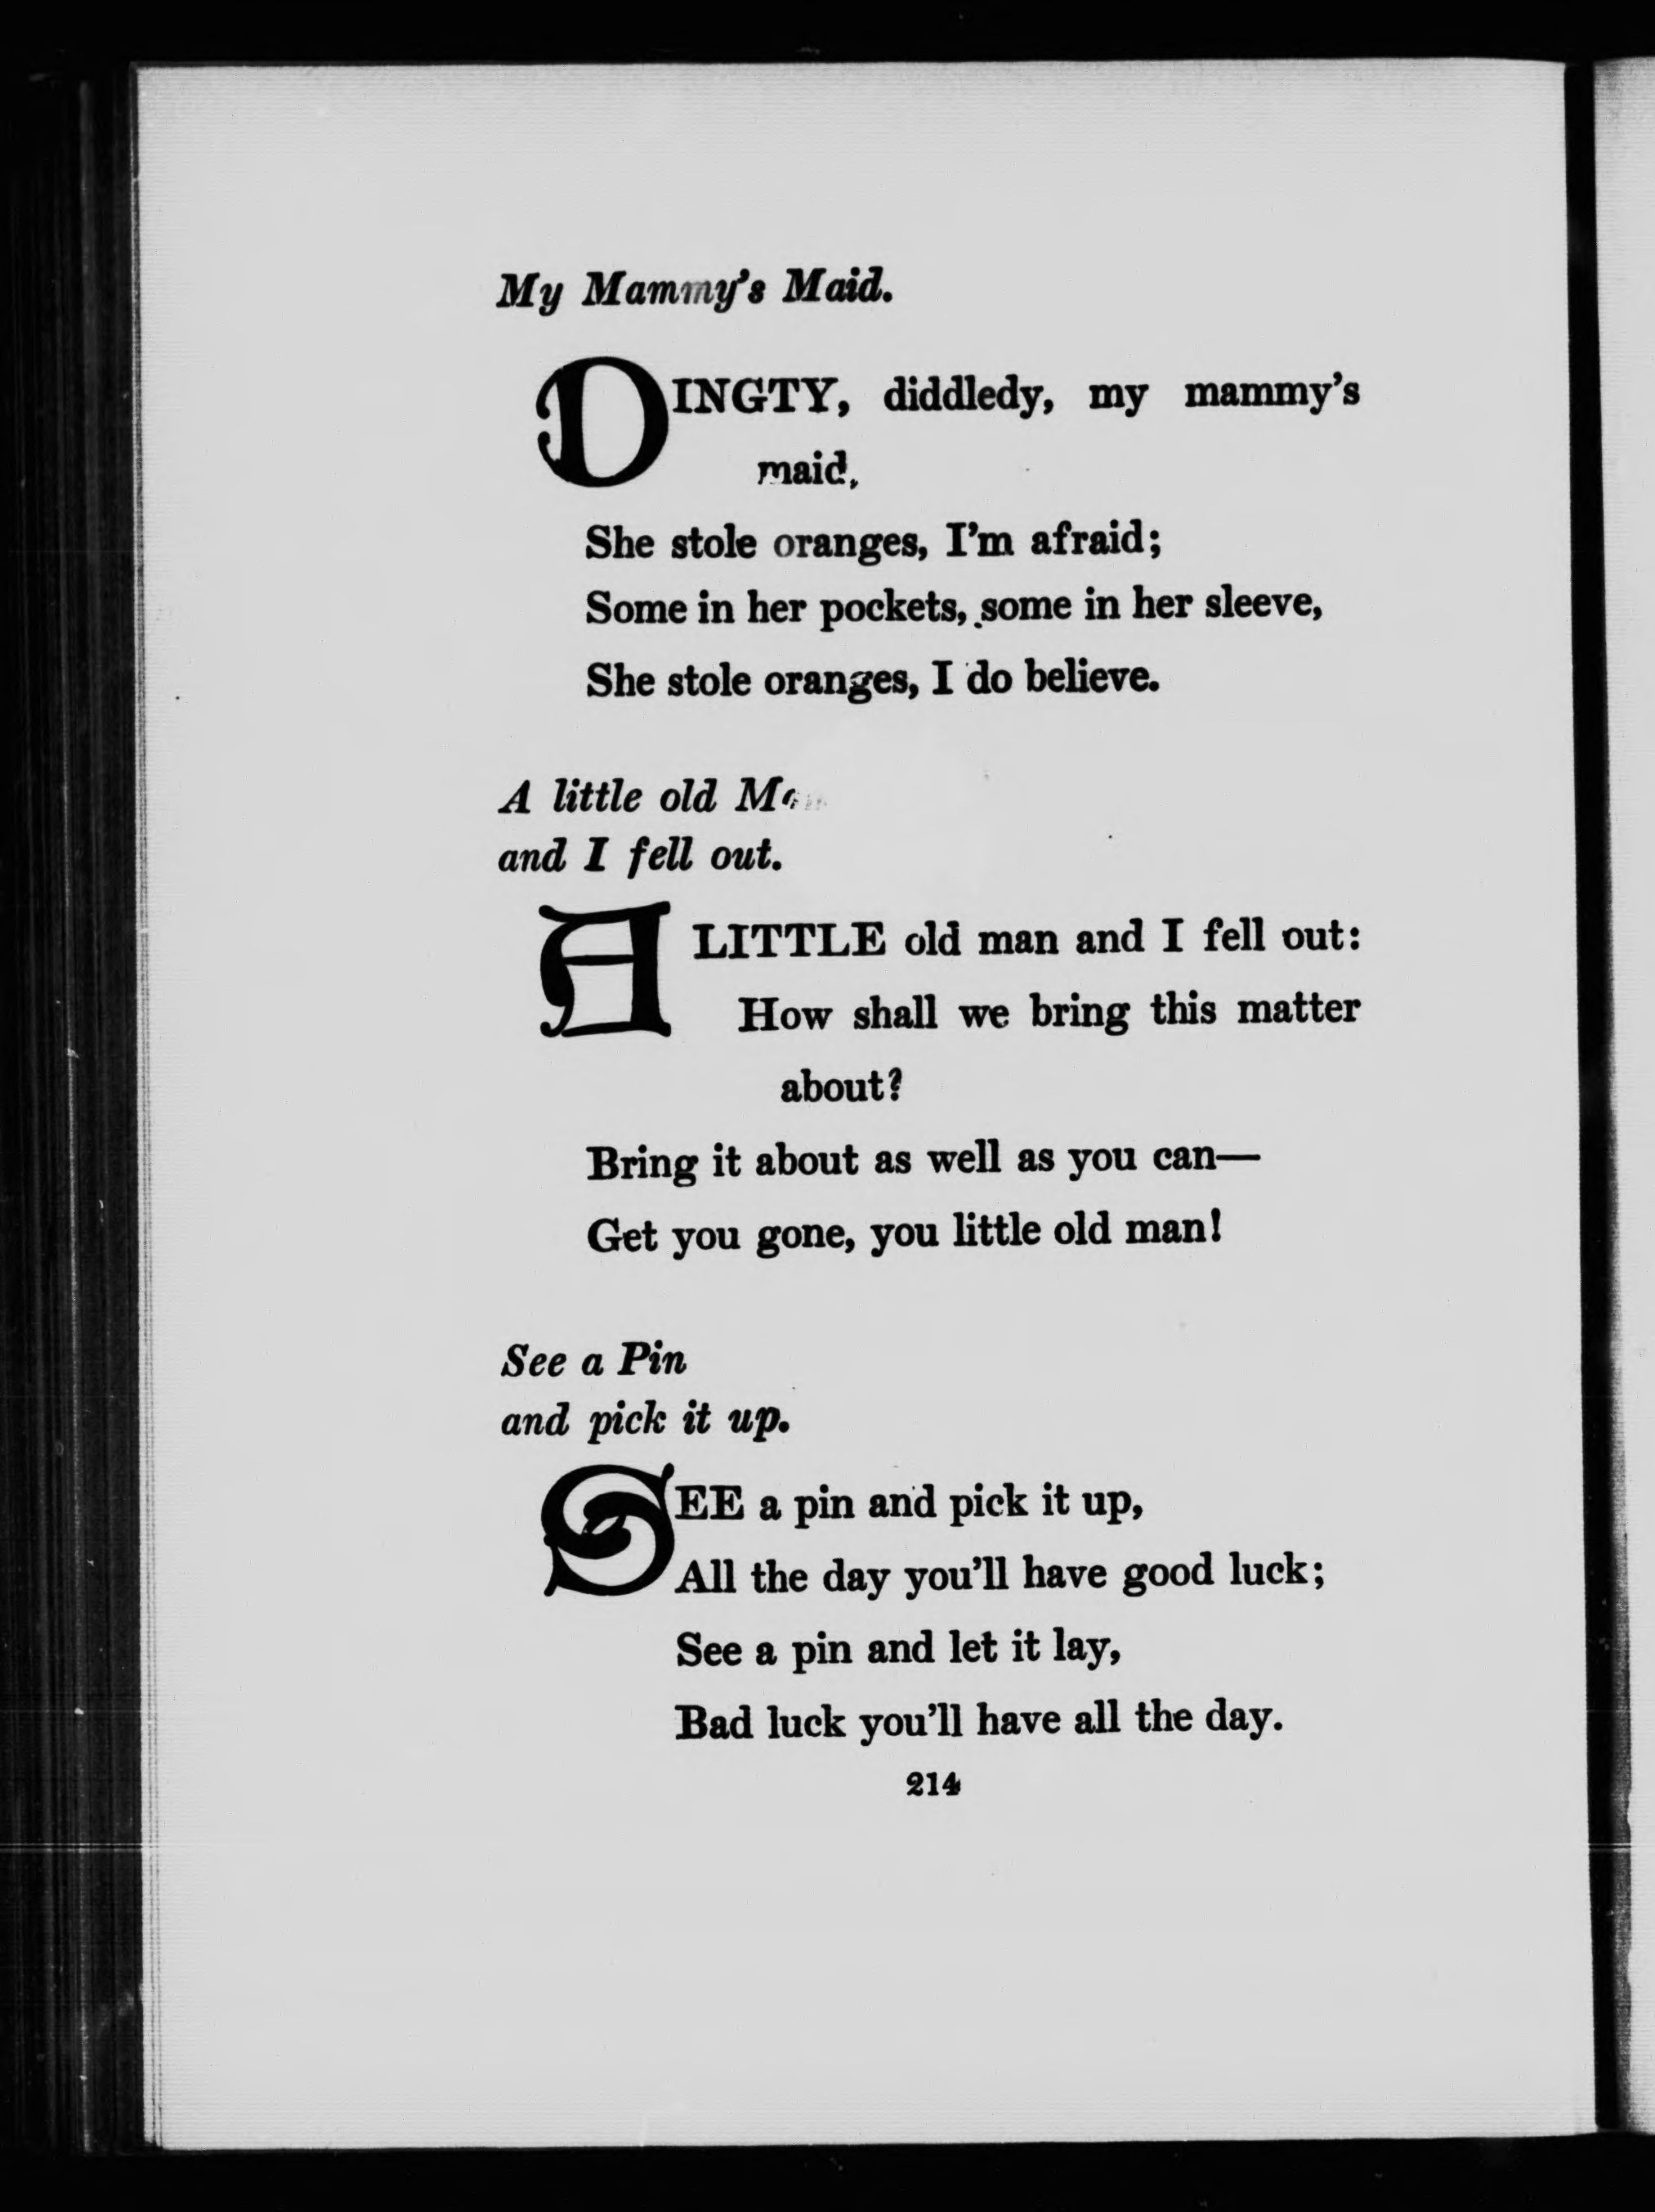 My Mammy's Maid.
DINGTY, diddledy, my mammy's
maid,
She stole oranges, I'm afraid;
Some in her pockets, some in her sleeve,
She stole oranges, I do believe.
A little old Man
and I fell out.
A LITTLE old man and I fell out:
How shall we bring this matter
about?
Bring it about as well as you can—
Get you gone, you little old man!
See a Pin
and pick it up.
SEE a pin and pick it up,
All the day you'll have good luck;
See a pin and let it lay,
Bad luck you'll have all the day.
214